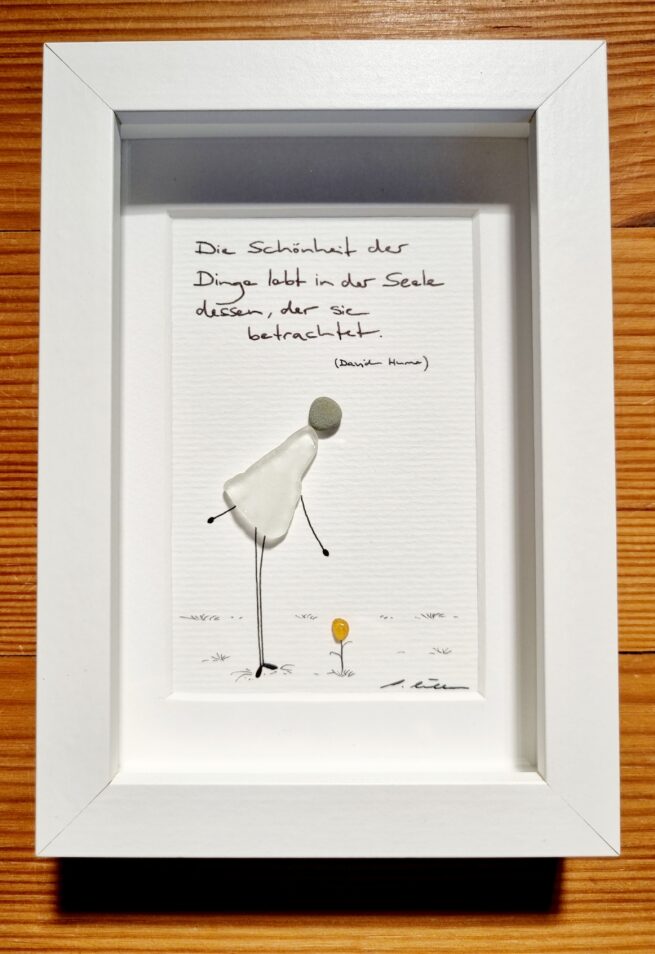 Die Schönheit der
Dinge lebt in der Seele
dessen, der sie
betrachtet.
(David Hume)